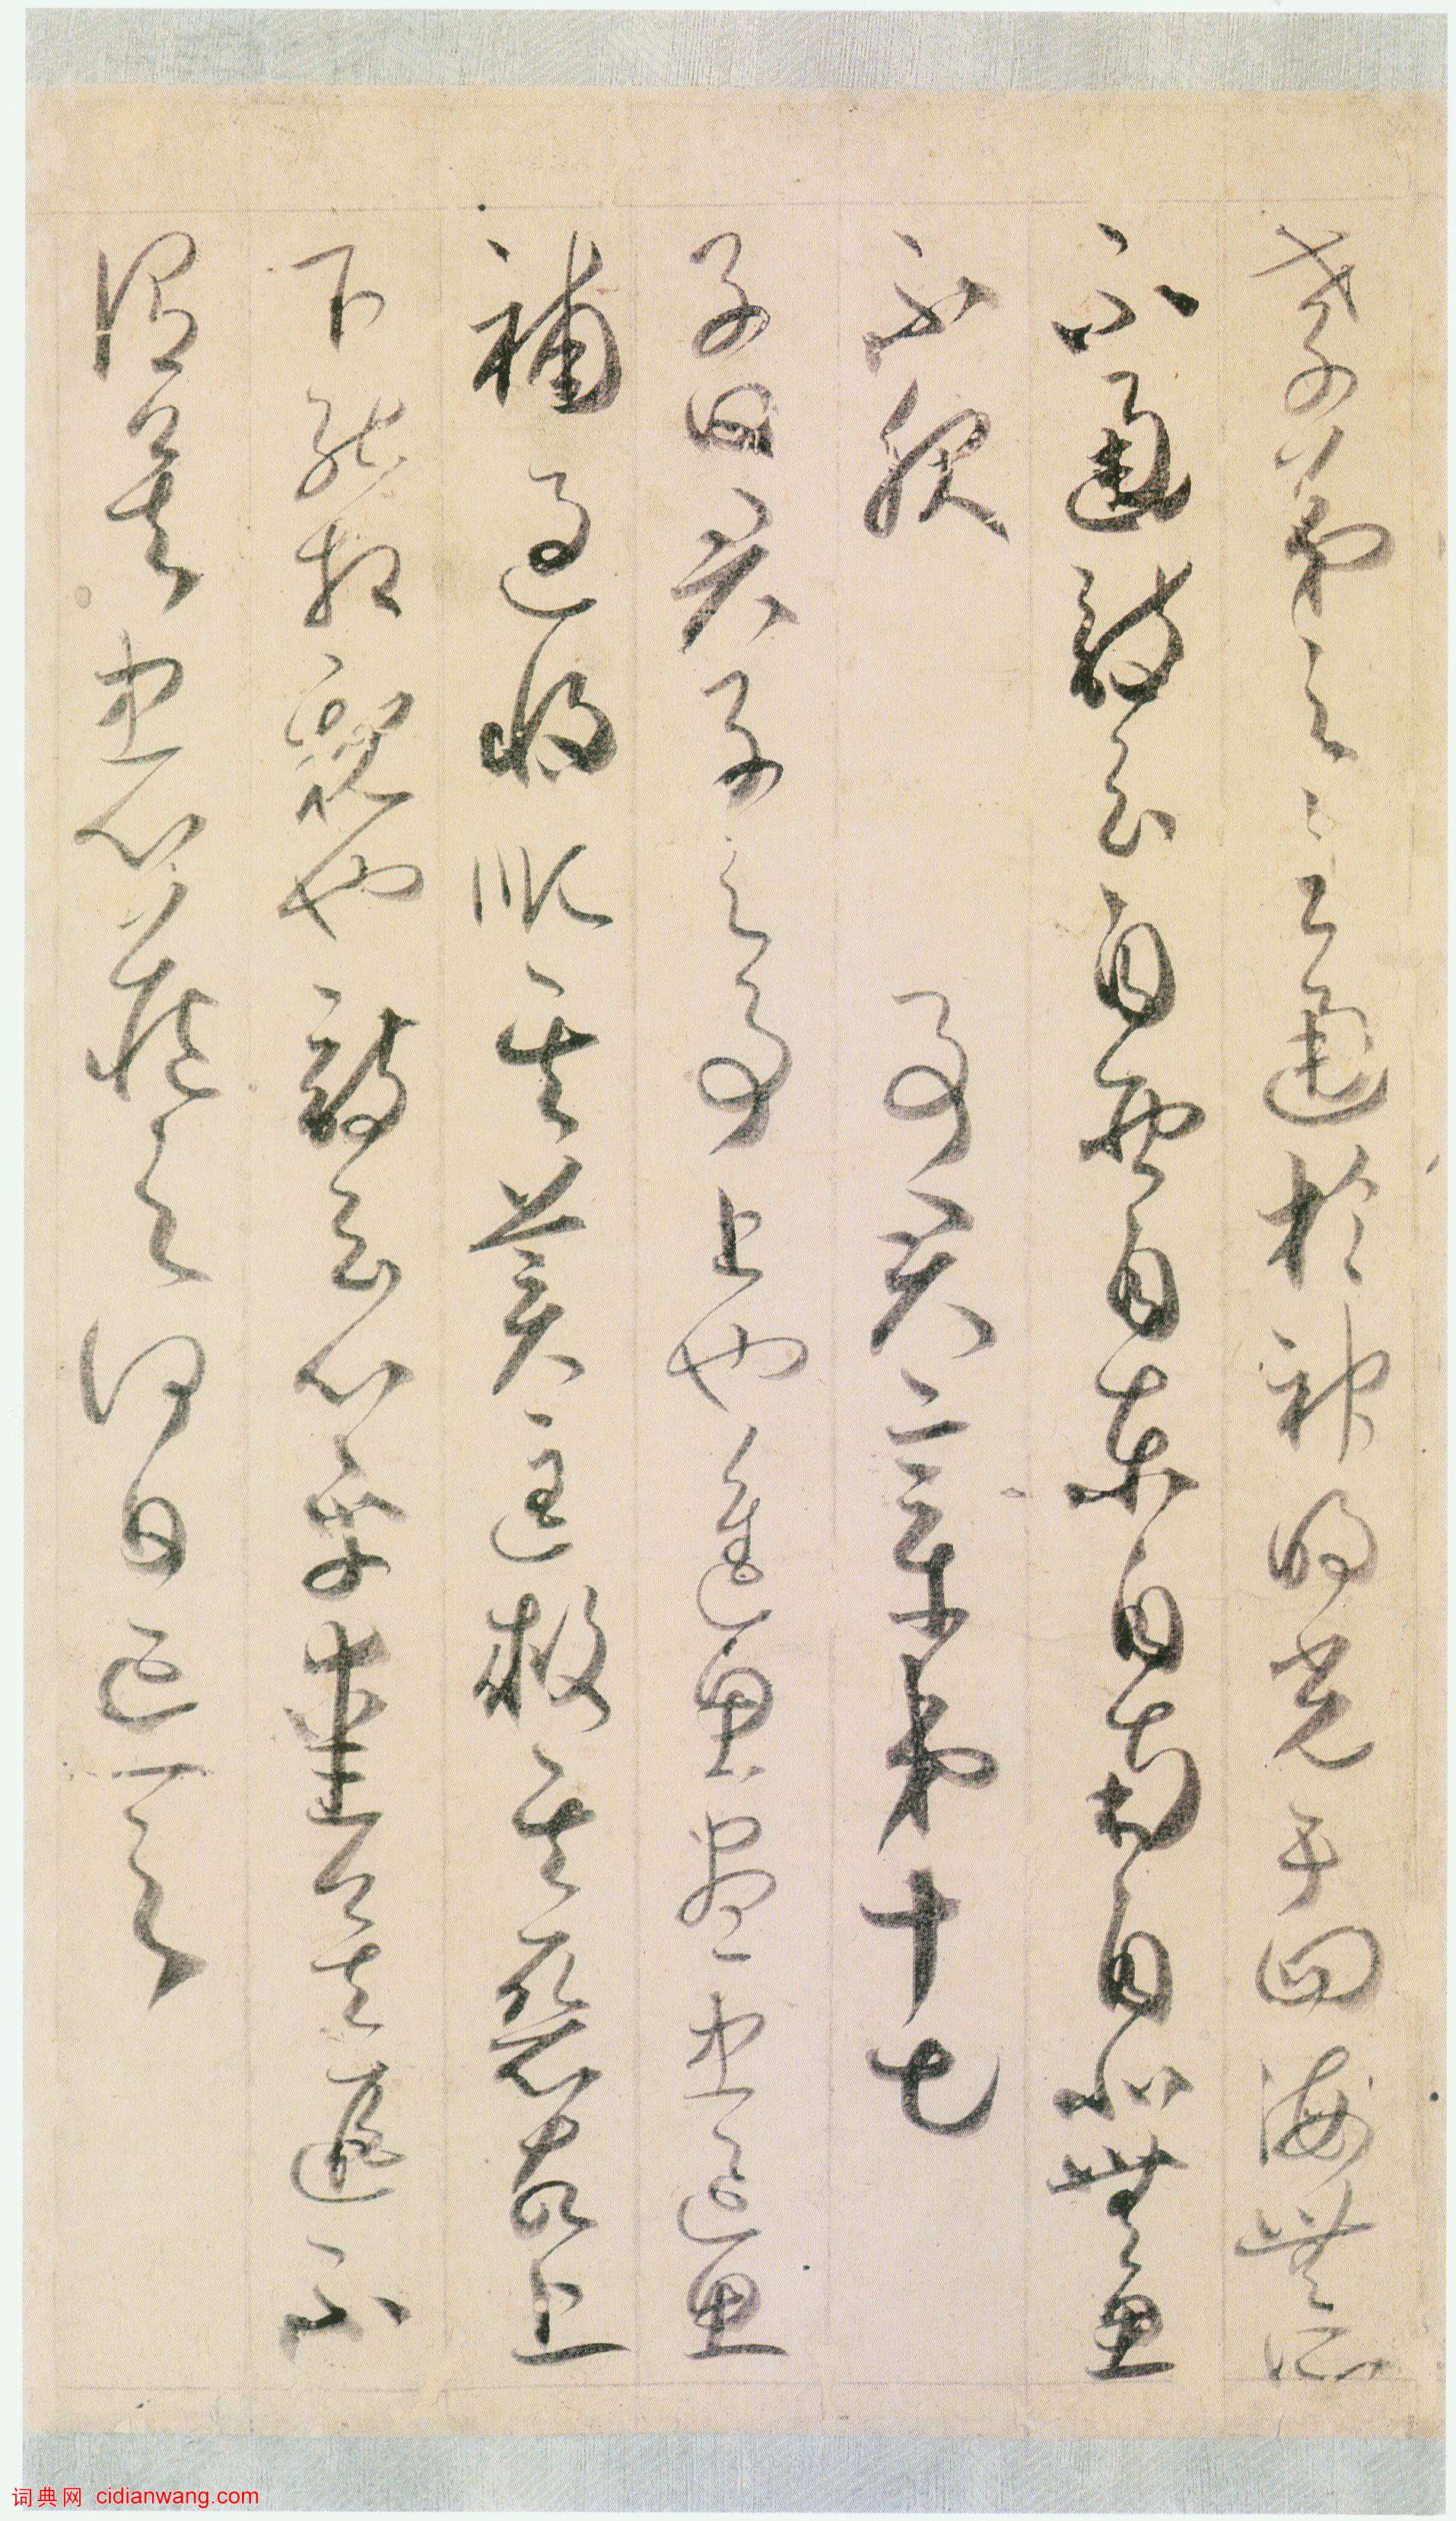 孝弟之至通於神明光于四海無所
不通詩云自西自東自南自北無思
不服 事君章第十七
子曰君子之事上也進思盡忠退思
補過將順其美匡救其惡故上
下能相親也詩云心乎愛矣遐不
謂矣忠心藏之何日忘之
词典网 cidianwang.com